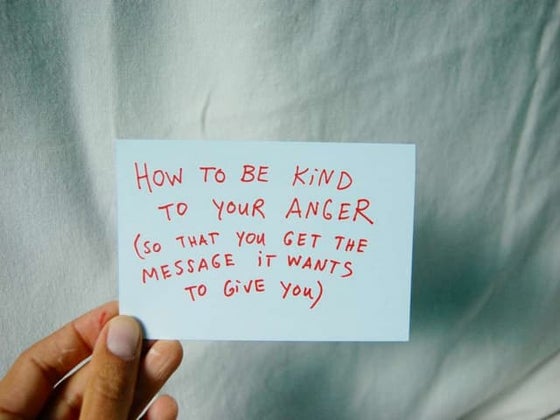 HOW TO BE KiND
TO YOUR ANGER
(SO THAT YOU GET THE
MESSAGE iT WANTS
TO GiVE YOU)